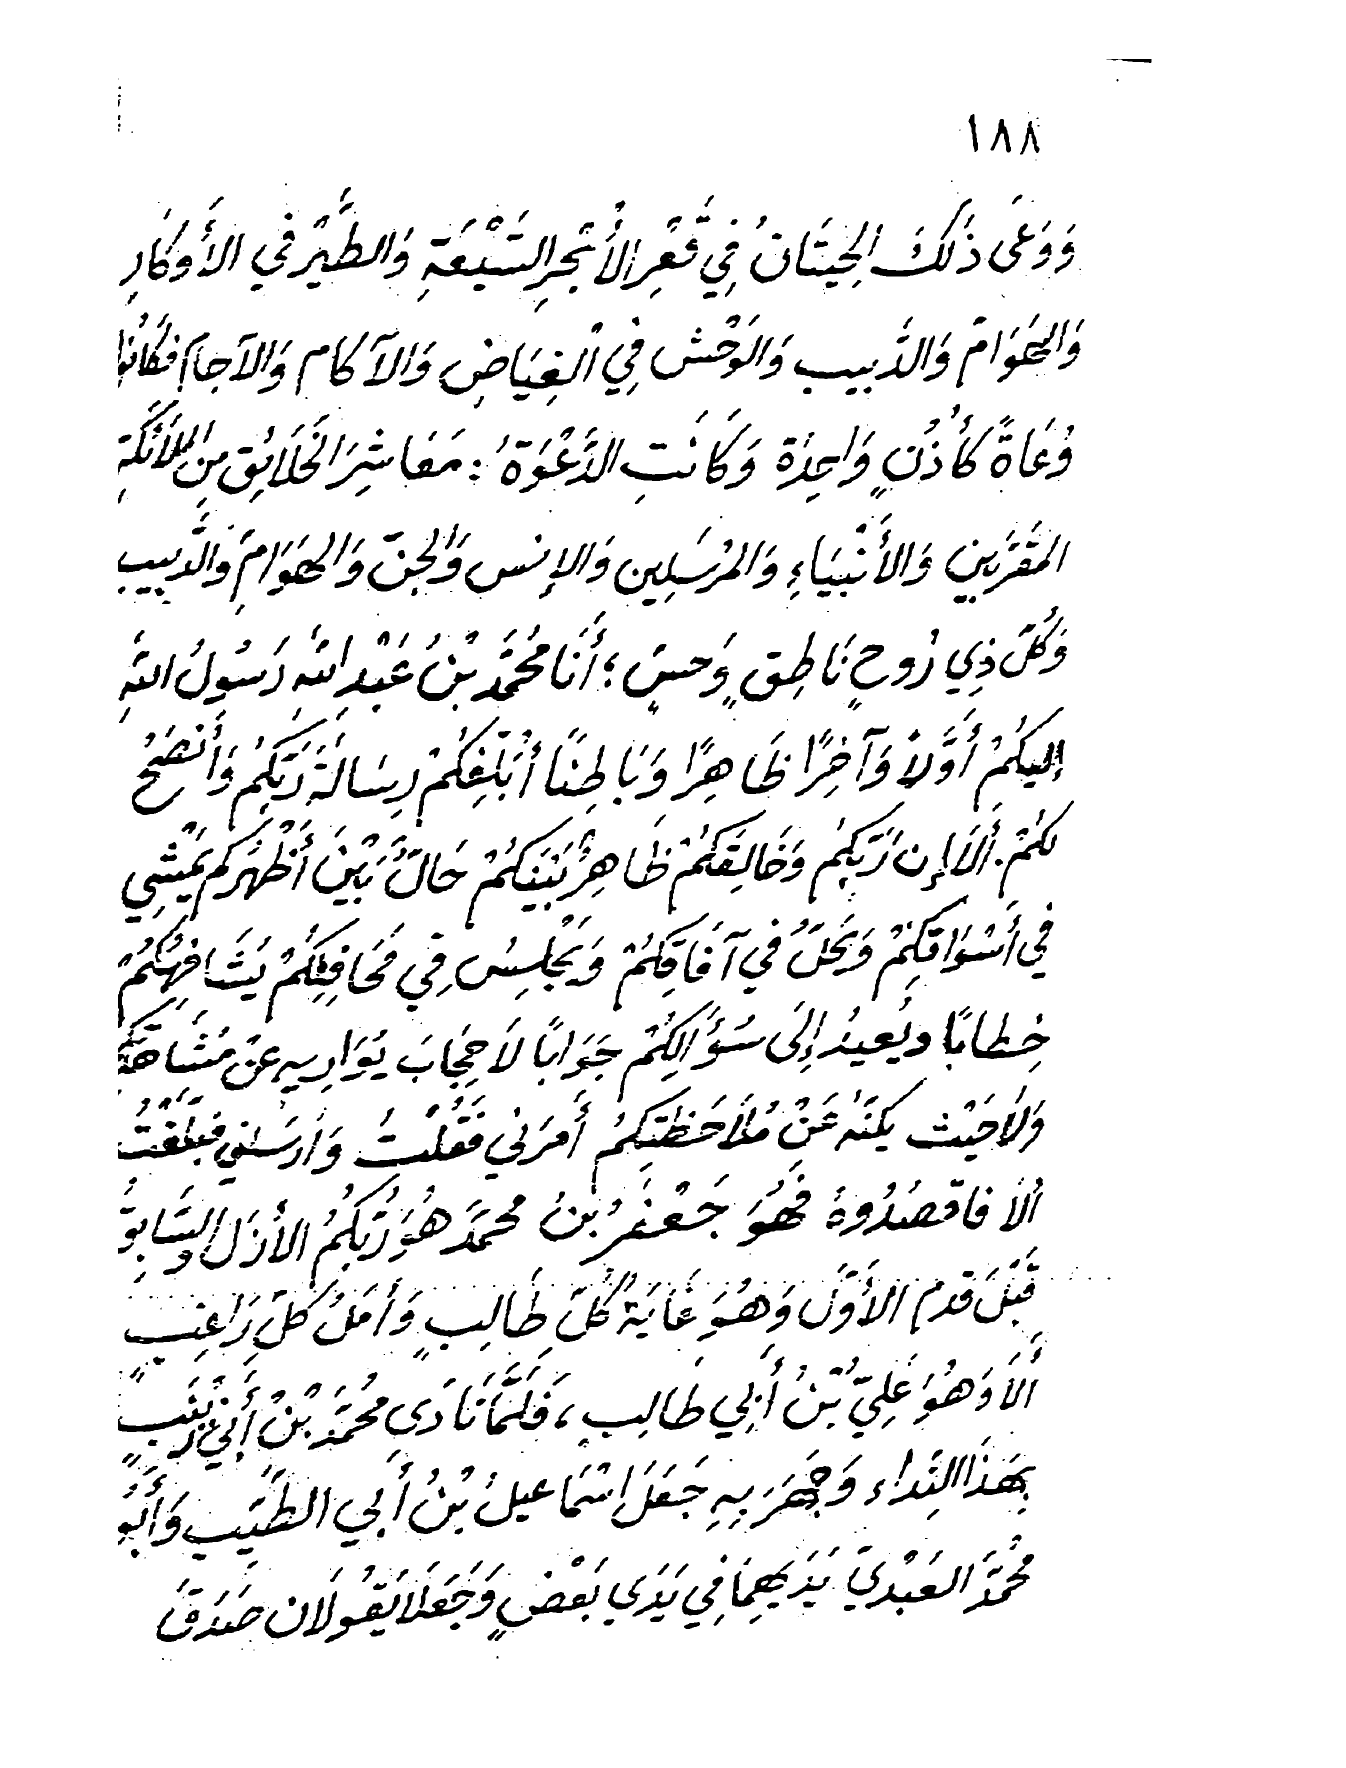 ١٨٨
وَوَعَى ذَلَكَ الحِيتَانُ فِي قَعْرِ الأَبْحُرِ السَّبْعَةِ وَالطَّيْرُ في الأَوكَارِ
وَالهَوَامّ وَالدَّبيب وَالوَحْش فِي الغِيَاضِ وَالآكَام وَالآجام فكَانُوا
وُعَاةً كَأُذُنٍ وَاحِدَة وَكَانَتِ الدَّعْوَةُ: مَعَاشِرَ الخَلَايِقِ مِنَ المَلَائكَةِ
المقَرَّبين وَالأَنْبِيَاءِ وَالمُرْسَلِين وَالإنس وَالجنّ وَالهَوَامّ وَالدَّبيب
وَكُلّ ذِي رُوحٍ نَاطِقٍ وَحسٍّ؛ أَنَا مُحَمَّد بْنُ عَبْدِ اللَّه رَسُولُ اللَّهِ
إليكُمْ أَوَّلاً وَآخِرًا ظَاهِرًا وَبَاطِنًا أُبَلِّغُكُمْ رِسَالَةَ رَبِّكُمْ وَأَنْصَحُ
لكُمْ. أَلَا إن رَبّكُم وَخَالِقَكُمْ ظَاهِرٌ بَيْنَكُمْ حَالٌّ بَيْنَ أَظْهُرَكُم يَمْشِي
في أَسْوَاقكِمْ وَيَحُلّ في آفَاقِكُمْ وَيَجْلِسُ فِي مَحَافِلِكُمْ يُشَافِهُكُمْ
خِطابًا ويُعيدُ إلَى سُؤَالِكُمْ جَوَابًا لَا حِجَابَ يُوَارِيهِ عَنْ مُشَاهَدَتِكُمْ
وَلَا حَيْث يكنّهُ عَنْ مُلَاحَظَتِكُمْ أَمرَني فَقُلْتُ وَأرسَلني فبَلَّغْتُ
ألَا فاقصُدُوهُ فَهُوَ جَعْفَرُ بْنُ محمَّد هُوَ رَبّكُمُ الأزَل السَّابِقُ
قَبْلَ قدم الأَوَّل وَهُوَ غَايَةُ كُلّ طَالِبٍ وَأَمَلُ كلّ رَاغِبٍ
أَلَا وَهُوَ عَلِيّ بْنُ أَبِي طَالِبِ، فَلَمَّا نَادَى محُمَّد بْنُ أَبي زَيْنَبٍ
بِهَذَا النِداء وَجَهَرَ بِهِ جَعَلَ اسْمَاعيلُ بْنُ أَبي الطَّيِّبِ وَأَبُو
مُحَمَّد العَبْديّ يَدَيهِمَا فِي يَدَي بَعْضٍ وَجَعَلَا يَقُولَان صَدَقَ